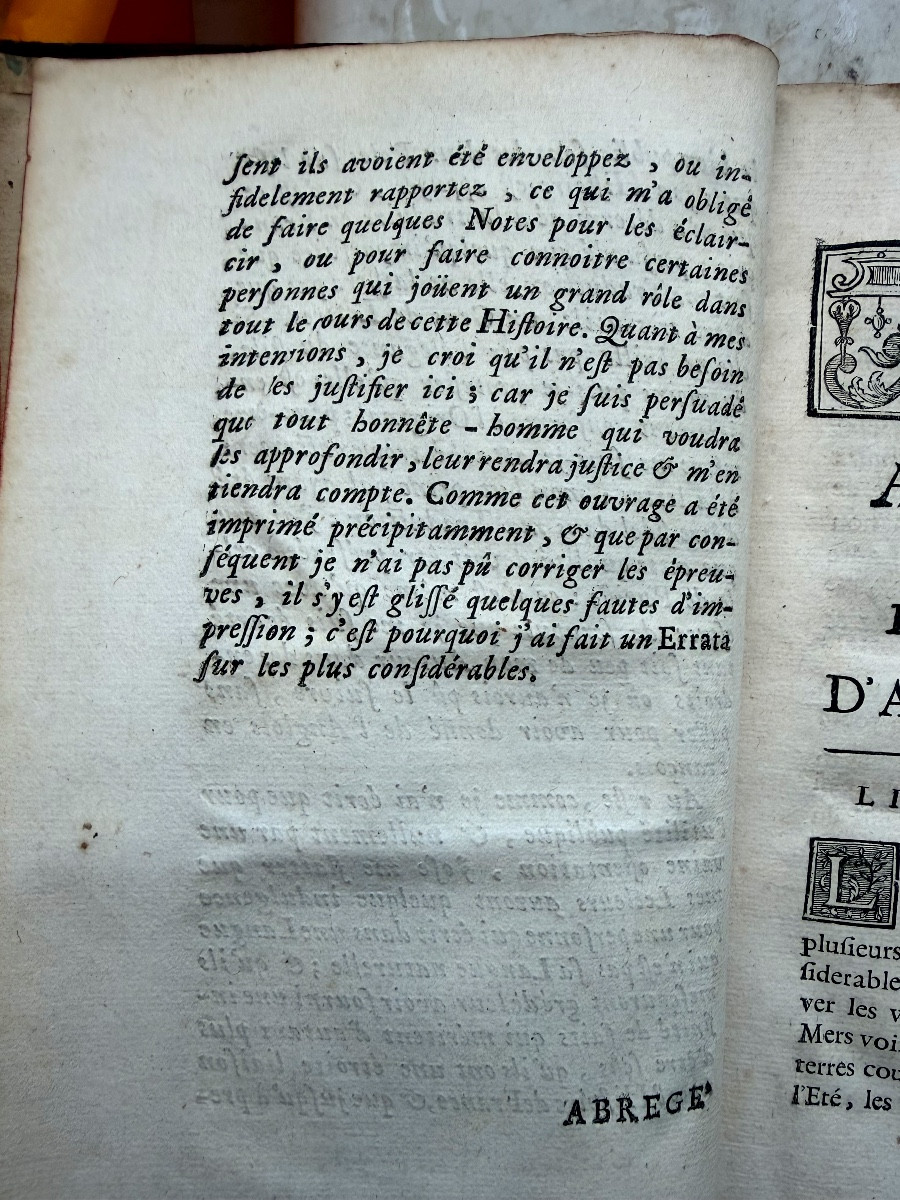 ſent ils avoient été enveloppez , ou in-
fidelement rapportez , ce qui m'a obligé
de faire quelques Notes pour les éclair-
cir , ou pour faire connoitre certaines
perſonnes qui joüent un grand rôle dans
tout le cours de cette Hiſtoire. Quant à mes
intentions , je croi qu'il n'eſt pas beſoin
de les juſtifier ici ; car je ſuis perſuadé
que tout honnête - homme qui voudra
les approfondir , leur rendra juſtice & m'en
tiendra compte. Comme cet ouvrage a été
imprimé précipitamment , & que par con-
ſéquent je n'ai pas pû corriger les épreu-
ves , il s'y eſt gliſſé quelques fautes d'im-
preſſion ; c'eſt pourquoi j'ai fait un Errata
ſur les plus conſidérables.
ABREGE'
D'A
L I
L
pluſieurs
ſiderable
ver les v
Mers voi
terres cou
l'Eté, les